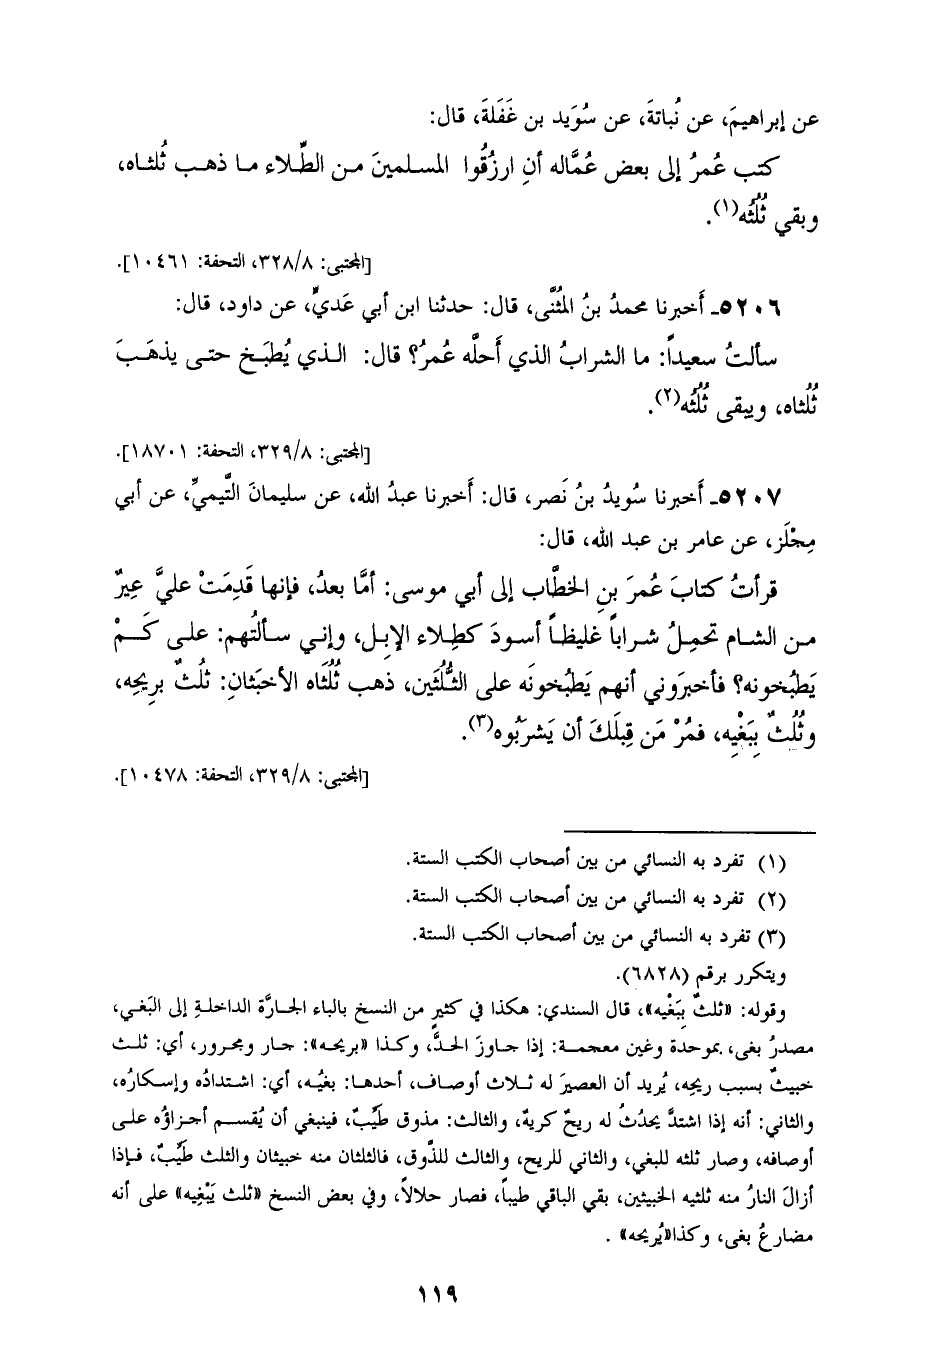 عن إبراهيمَ، عن نُباتةَ، عن سُوَيد بن غَفَلةَ، قال:
كتب عُمرُ إلى بعض عُمَّاله أنِ ارزُقُوا المسلمينَ من الطِّلاء ما ذهب ثُلثاه،
وبقي ثُلُثُه(١).
[المجتبى: ٣٢٨/٨، التحفة: ١٠٤٦١].
٥٢٠٦ـ أَخبرنا محمدُ بنُ المُثنَّى، قال: حدثنا ابن أبي عَديٍّ، عن داود، قال:
سألتُ سعيداً: ما الشرابُ الذي أَحلَّه عُمرُ؟ قال: الذي يُطبَخ حتى يذهَبَ
ثُلُثاه، ويبقى ثُلُثُه(٢).
[المجتبى: ٣٢٩/٨، التحفة: ١٨٧٠١].
٥٢٠٧ـ أَخبرنا سُويدُ بنُ نَصر، قال: أَخبرنا عبدُ الله، عن سليمانَ التَّيميِّ، عن أبي
مِجْلَز، عن عامر بن عبد الله، قال:
قرأتُ كتابَ عُمرَ بنِ الخطَّاب إلى أبي موسى: أمَّا بعدُ، فإنها قَدِمَتْ عليَّ عِيرٌ
من الشام تحمِلُ شراباً غليظاً أسودَ كطِلاء الإبِل، وإني سألتُهم: على كَمْ
يَطبُخونه؟ فأخبرَوني أنهم يَطبُخونَه على الثُّلُثَين، ذهب ثُلُثَاه الأخبَثانِ: ثُلُثٌ بِرِيحِه،
وثُلُثٌ بِبَغْيِه، فمُرْ مَن قِبلَكَ أن يَشرَبُوه(٣).
[المجتبى: ٣٢٩/٨، التحفة: ١٠٤٧٨].
(١) تفرد به النسائي من بين أصحاب الكتب الستة.
(٢) تفرد به النسائي من بين أصحاب الكتب الستة.
(٣) تفرد به النسائي من بين أصحاب الكتب الستة.
ويتكرر برقم (٦٨٢٨).
وقوله: «ثلثٌ بِبَغْيه»، قال السندي: هكذا في كثيرٍ من النسخ بالباء الجارَّة الداخلةِ إلى البَغي،
مصدرُ بغى، بموحدة وغين معجمة: إذا جاوزَ الحدَّ، وكذا «بريحه»: جار ومجرور، أي: ثلث
خبيثٌ بسبب ريحِه، يُريد أن العصيرَ له ثلاث أوصاف، أحدها: بغيُه، أي: اشتدادُه وإسكارُه،
والثاني: أنه إذا اشتدَّ يحدُثُ له ريحٌ كريهٌ، والثالث: مذوق طيِّبٌ، فينبغي أن يُقسم أجزاؤُه على
أوصافه، وصار ثلثه للبغي، والثاني للريح، والثالث للذَّوق، فالثلثان منه خبيثان والثلث طيِّبٌ، فإذا
أزالَ النارُ منه ثلثيه الخبيثين، بقي الباقي طيباً، فصار حلالاً، وفي بعض النسخ «ثلث يَبْغِيه» على أنه
مضارعُ بغى، وكذا«يُريحه» .
١١٩